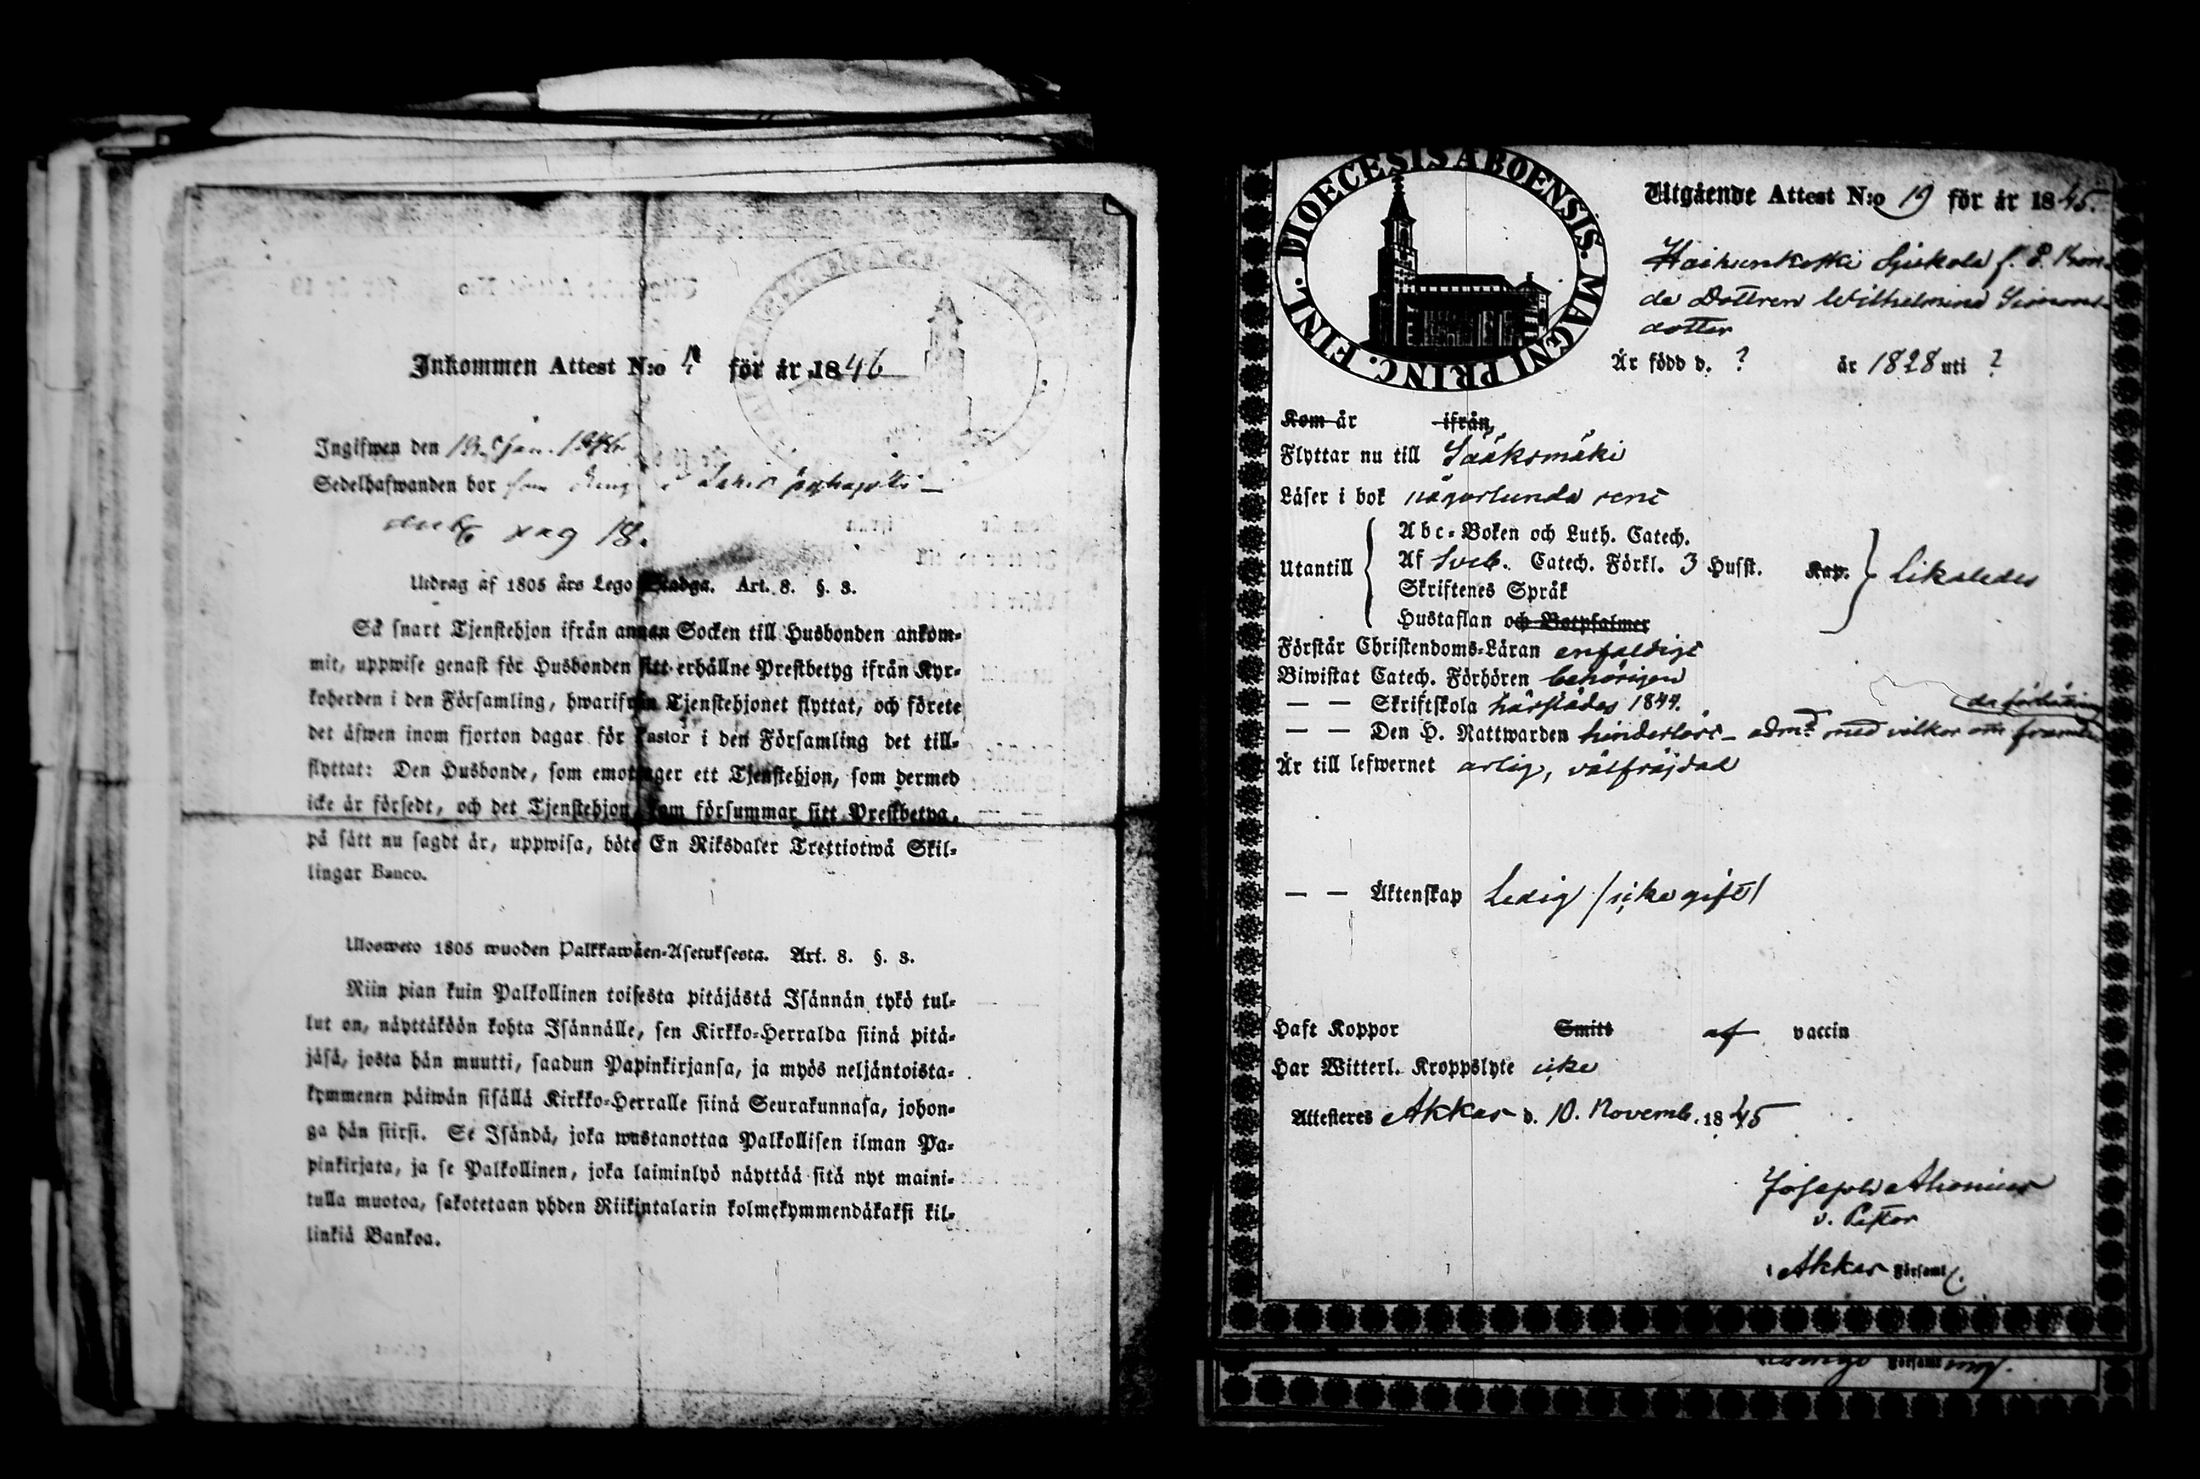 Inkommen Attest N:o för år 1846
Ingifwen den 19 Jan. 1846
Sedelhafwanden bor
pag 18.
Utdrag af 1805 års Lego Stadga. Art. 8. §. 3.
Så snart Tjenstehjon ifrån annan Socken till Husbonden ankom-
mit, uppwise genast för Husbonden sitt erhållne Prestbetyg ifrån Kyr-
koherden i den Församling, hwarifrån Tjenstehjonet flyttat, och förete
det äfwen inom fjorton dagar för Pastor i den Församling det till-
flyttat: Den Husbonde, som emottager ett Tjenstehjon, som dermed
icke är försedt, och det Tjenstehjon, som försummar sitt Prestbetyg,
på sätt nu sagdt är, uppwisa, böte En Riksdaler Trettiotwå Skil-
lingar Banco.
Ulosweto 1805 wuoden Palkkawäen-Asetuksesta. Art. 8. §. 3.
Niin pian kuin Palkollinen toisesta pitäjästä Isännän tykö tul-
lut on, näyttäköön kohta Isännälle, sen Kirkko-Herralda siinä pitä-
jäsä, josta hän muutti, saadun Papinkirjansa, ja myös neljäntoista-
kymmenen päiwän sisällä Kirkko-Herralle siinä Seurakunnasa, johon-
ga hän siirsi. Se Isändä, joka wastanottaa Palkollisen ilman Pa-
pinkirjata, ja se Palkollinen, joka laiminlyö näyttää sitä nyt maini-
tulla muotoa, sakotetaan yhden Riikintalarin kolmekymmendäkaksi kil-
linkiä Bankoa.
DIOECESIS ABOENSIS. MAGNI PRINC. FINL.
Utgående Attest N:o 19 för år 1845.
de Dottren Wilhelmina Simons-
dotter
Är född d. ? år 1828 uti ?
Kom år ifrån
Flyttar nu till Sääksmäki
Läser i bok någorlunda rent
Utantill
Abc-Boken och Luth. Catech.
Af Sveb. Catech. Förkl. 3 Husst. Kap.
Skriftenes Språk
Hustaflan och Botpsalmer
likaledes
Förstår Christendoms-Läran enfaldigt
Biwistat Catech. Förhören behörigen
— — Skriftskola härstädes 1844.
— — Den H. Nattwarden hinderlöst - adm. med vilkor om framdeles
Är till lefwernet ärlig, välfräjdad
— — Äktenskap Ledig /icke gift/
Haft Koppor Smitt af vaccin
Har Witterl. Kroppslyte icke
Attesteres Akkas d. 10. Novemb. 1845
v. Pastor
i Akkas Församl.